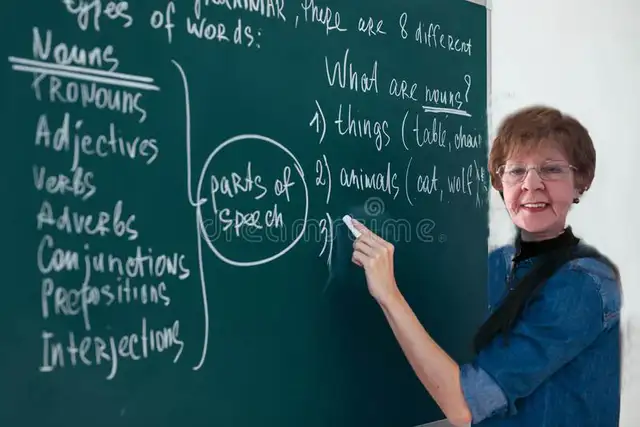 types of GRAMMAR, there are 8 different
words:
Nouns
PRONOUNS
Adjectives
Verbs
Adverbs
Conjunctions
Prepositions
Interjections
parts of
speech
What are nouns?
1) things (table, chair
2) animals (cat, wolf)
3)
dreamstime